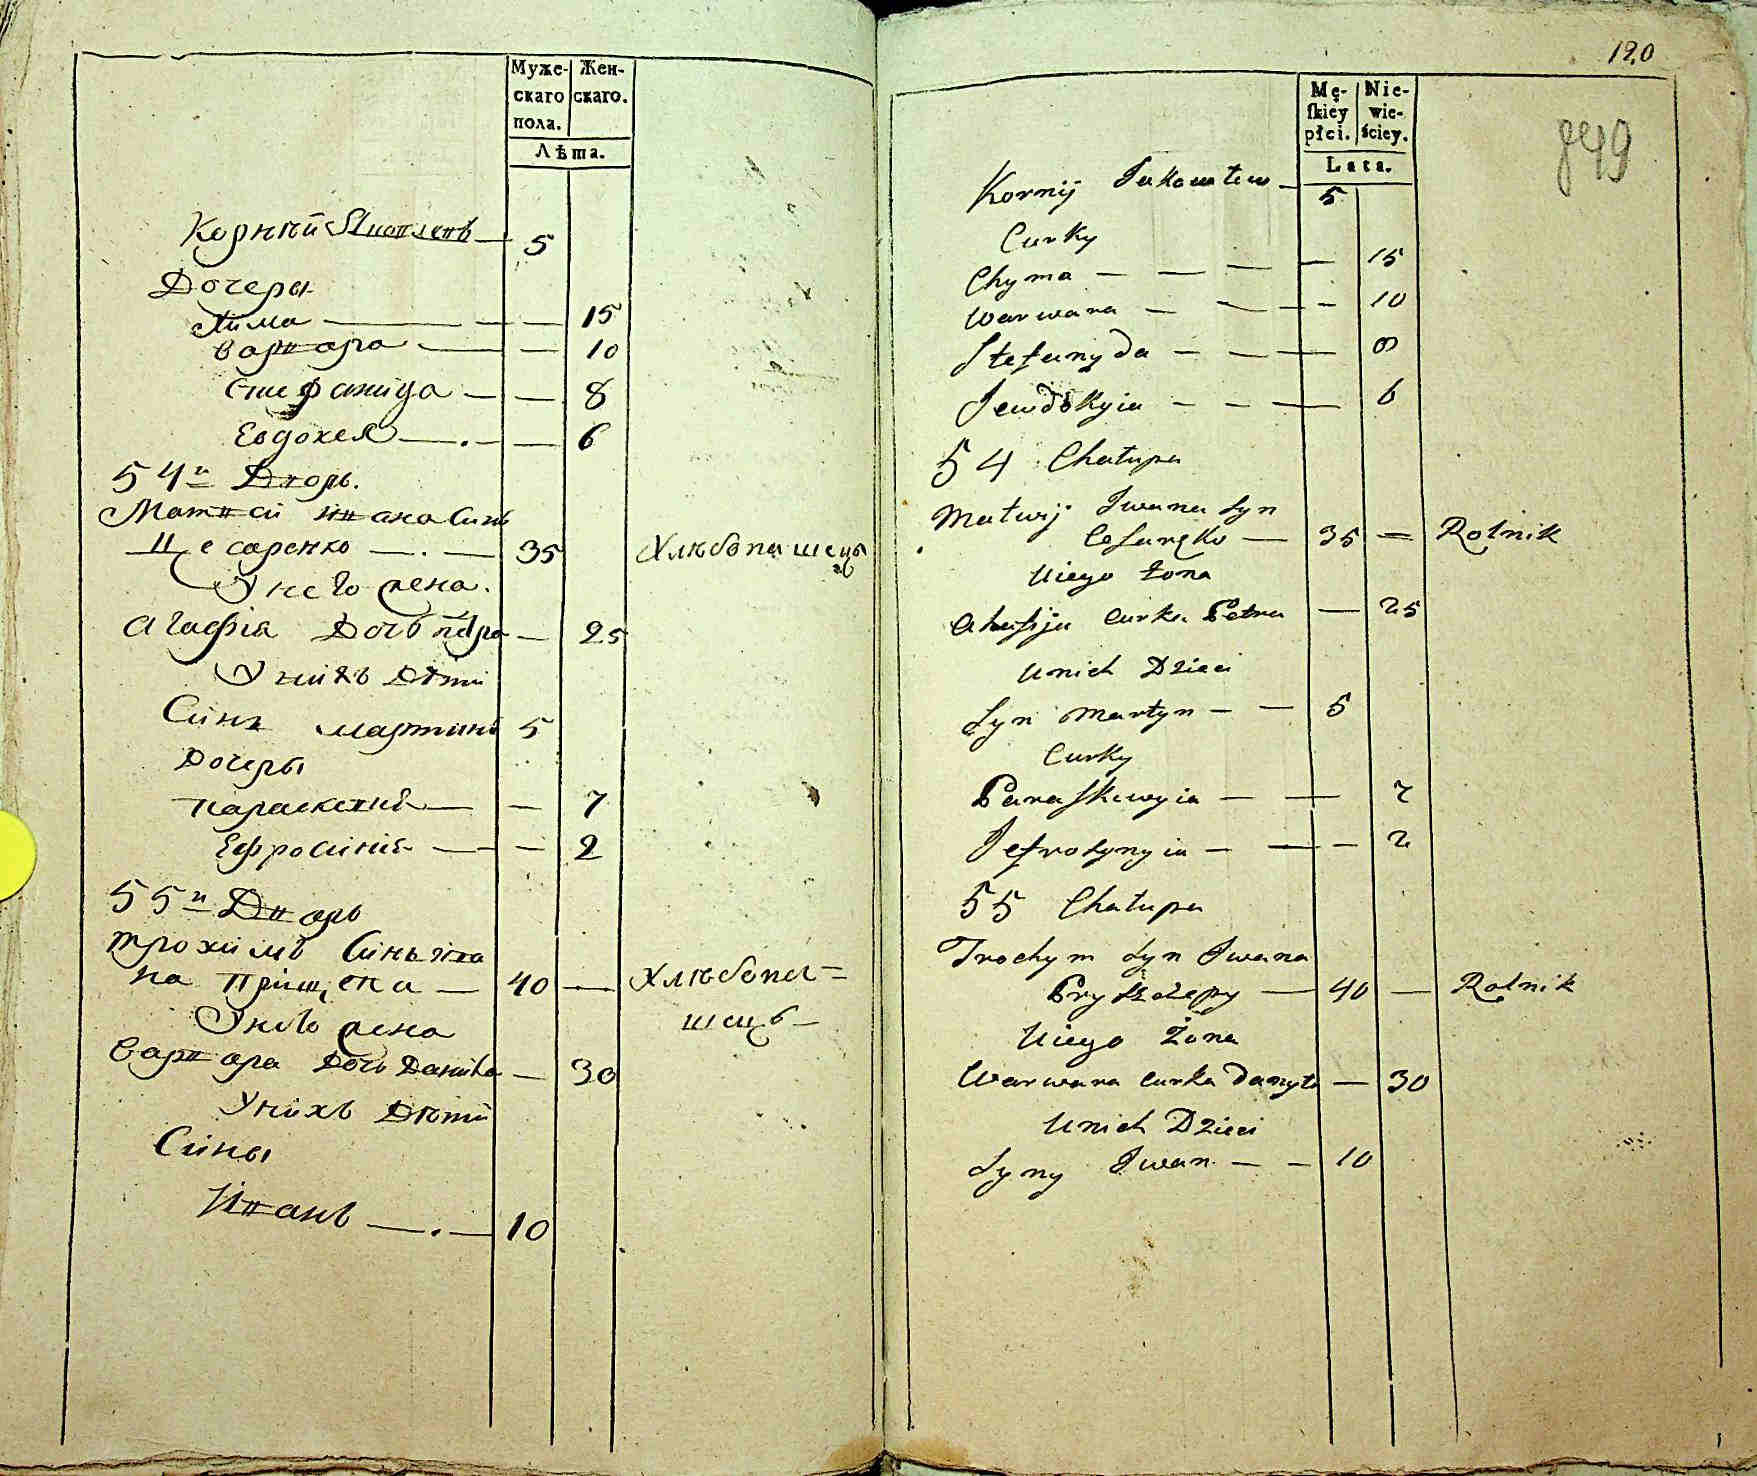 Муже- Жен-
скаго скаго.
пола.
Лѣта.
Корнѣй Яковлевъ — 5
Дочеры
Хима — — — 15
Варвара — — 10
Стефанида — — 8
Евдокея — . — — 6
54й Дворъ.
Матвѣй Ивана Синъ
Цесаренко — . — 35 Хлѣбопашецъ
У него жена.
Агафія Дочъ петра — 25
У нихъ Дѣти
Синъ мартинъ 5
Дочеры
параскевия — — 7
Ефросиния — — 2
55й Дворъ
трохимъ Синъ ива
на Прищепа — 40 — Хлѣбопа=
У него жена шецъ —
Варвара Дочъ Данила — 30
У нихъ Дѣти
Сины
Иванъ — . — 10
120
849
Mę- Nie-
skiey wie-
płci. ściey.
Lata.
Kornij Jakowlew — 5
Curky
Chyma — — — — 15
Warwara — — — — 10
Stefanyda — — — 8
Jewdokyia — — — 6
54 Chałupa
Matwij Iwana Syn
Cesaręko — 35 = Rolnik
Uiego Żona
Ahafija curka Petra — 25
Unich Dzieci
Syn Martyn — — 5
Curky
Paraskewyia — — 7
Jefrosynyia — — — 2
55 Chałupa
Trochym Syn Iwana
Pryszczepy — 40 — Rolnik
Uiego Żona
Warwara curka Danyła — 30
Unich Dzieci
Syny Iwan — — 10